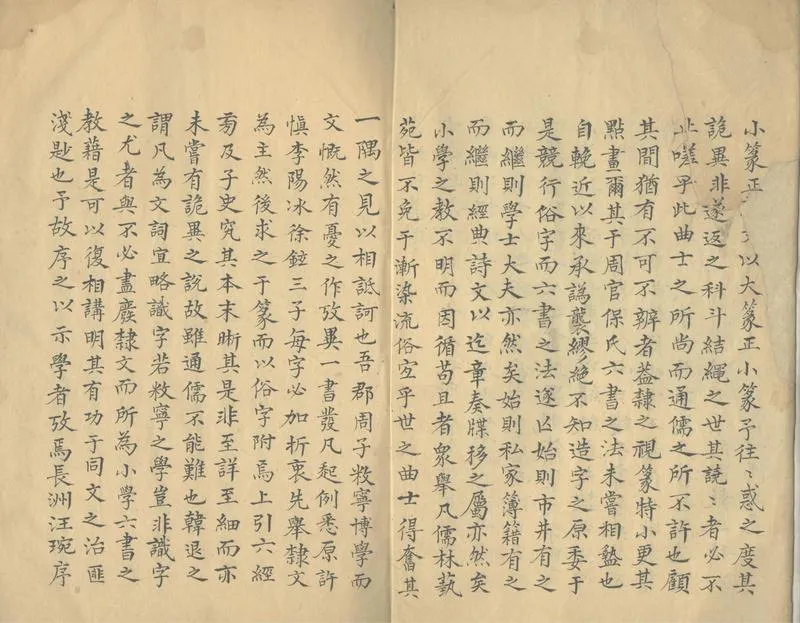 小篆正以大篆正小篆予往〻惑之度其
詭異非遂返之科斗結繩之世其譊〻者必不
止嗟乎此曲士之所尚而通儒之所不許也顧
其間猶有不可不辨者葢隸之視篆特小更其
點畫爾其于周官保氏六書之法未嘗相盭也
自輓近以來承譌襲繆絕不知造字之原委于
是競行俗字而六書之法遂亾始則市井有之
而繼則學士大夫亦然矣始則私家簿籍有之
而繼則經典詩文以迄章奏牒移之屬亦然矣
小學之教不明而因循苟且者衆舉凡儒林藝
苑皆不免于漸染流俗宐乎世之曲士得奮其
一隅之見以相詆訶也吾郡周子敉寧博學而
文慨然有憂之作攷異一書發凡起例悉原許
慎李陽冰徐鉉三子每字必加折衷先舉隸文
為主然後求之于篆而以俗字附焉上引六經
旁及子史究其本末晰其是非至詳至細而亦
未嘗有詭異之說故雖通儒不能難也韓退之
謂凡為文詞宜略識字若敉寧之學豈非識字
之尤者與不必盡廢隸文而所為小學六書之
教藉是可以復相講明其有功于同文之治匪
淺尟也予故序之以示學者攷焉長洲汪琬序